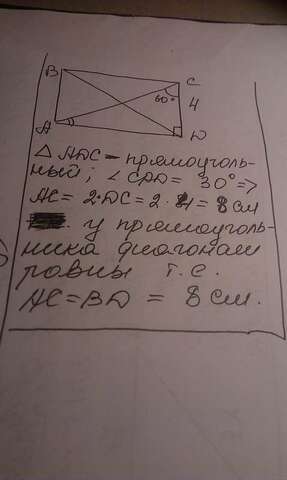 B
C
60°
4
A
D
△ ADC – прямоуголь-
ный; ∠ CPD = 30° =>
AC = 2·DC = 2·4 = 8 см
у прямоуголь-
ника диагонали
равны т.е.
AC = BD = 8 см.